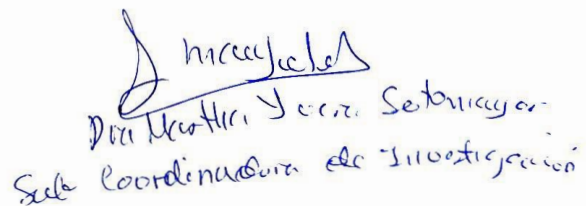 Dra Martha Vera Sotomayor
Sub Coordinadora de Investigación